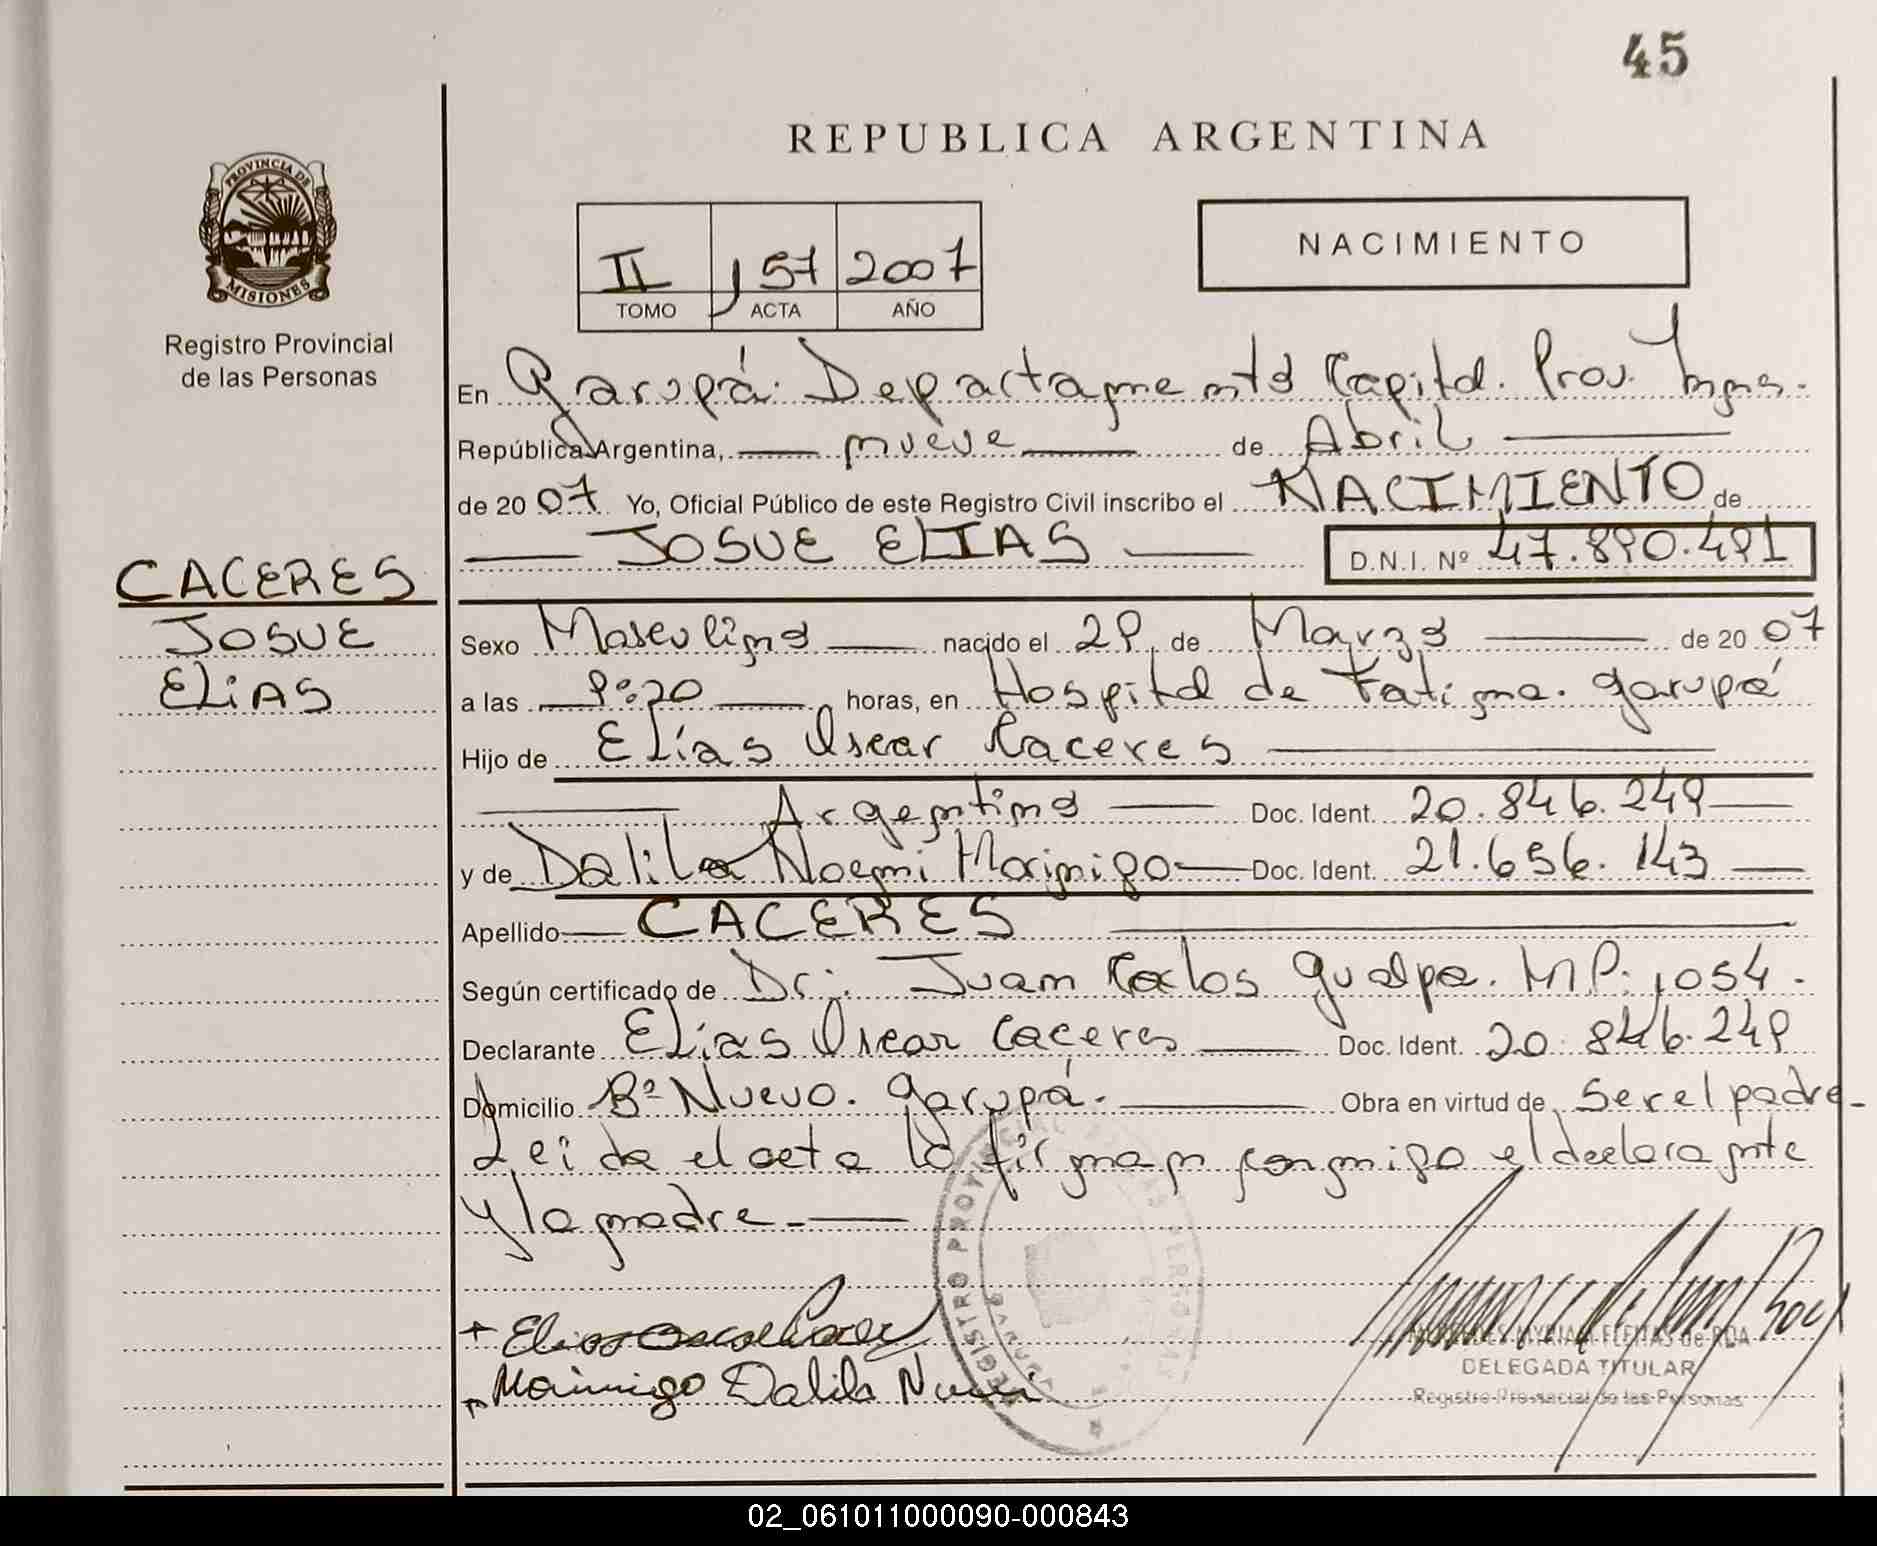 45
REPUBLICA ARGENTINA
PROVINCIA DE
MISIONES
Registro Provincial
de las Personas
NACIMIENTO
II 157 2007
TOMO ACTA AÑO
En Garupá. Departamento Capital. Prov. Mnes.
República Argentina, nueve de Abril
de 2007 Yo, Oficial Público de este Registro Civil inscribo el NACIMIENTO de
JOSUE ELIAS D.N.I. Nº 47.890.491
CACERES
JOSUE
ELIAS
Sexo Masculino nacido el 29 de Marzo de 2007
a las 9:20 horas, en Hospital de Fatima. Garupá
Hijo de Elías Oscar Caceres
Argentino Doc. Ident. 20.846.249
y de Dalila Noemi Marinigo Doc. Ident. 21.656.143
Apellido CACERES
Según certificado de Dr. Juan Carlos Gualpa. MP: 1054.
Declarante Elías Oscar Caceres Doc. Ident. 20.846.249
Domicilio Bº Nuevo. Garupá. Obra en virtud de ser el padre
Leida el acta la firman conmigo el declarante
y la madre
REGISTRO PROVINCIAL DE LAS PERSONAS
Elias Oscar Caceres
Marinigo Dalila Noemi
MYRIAM FLEITAS de ROA
DELEGADA TITULAR
Registro Provincial de las Personas
02_061011000090-000843